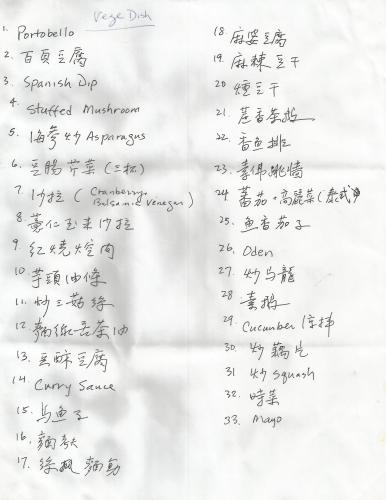 Vege Dish
1. Portobello
2. 百頁豆腐
3. Spanish Dip
4. Stuffed Mushroom
5. 海參炒 Asparagus
6. 豆腸芹菜(三杯)
7. 沙拉 (Cranberry
Balsamic Venegar)
8. 薏仁玉米沙拉
9. 紅燒烤
10. 芋頭油條
11. 炒三菇絲
12. 麵線-苦茶油
13. 豆酥豆腐
14 Curry Sauce
15. 烏魚子
16. 麵
17. 麵
18. 麻婆豆腐
19. 麻辣豆干
20 燻豆干
21. 茶鵝
22. 香魚排
23. 素佛跳牆
24 蕃茄+高麗菜(泰式)
25. 魚香茄子
26. Oden
27. 炒烏龍
28 素鵝
29. Cucumber 涼拌
30. 炒藕片
31 炒 Squash
32. 時菜
33. Mayo